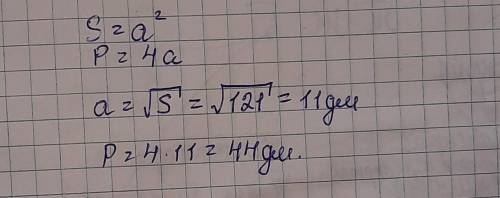 S = a²
P = 4a
a = √S = √121 = 11дм
P = 4 · 11 = 44дм.